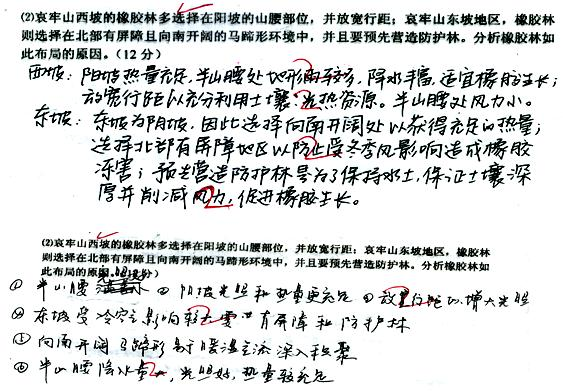 (2)哀牢山西坡的橡胶林多选择在阳坡的山腰部位，并放宽行距；哀牢山东坡地区，橡胶林
则选择在北部有屏障且向南开阔的马蹄形环境中，并且要预先营造防护林。分析橡胶林如
此布局的原因。(12分)
西坡：阳坡热量充足，半山腰处地形雨较多，降水丰富，适宜橡胶生长；
放宽行距以充分利用土壤、光热资源。半山腰处风力小。
东坡：东坡为阴坡，因此选择向南开阔处以获得充足的热量；
选择北部有屏障地区以防止受冬季风影响造成橡胶
冻害；预先营造防护林是为了保持水土，保证土壤深
厚并削减风力，促进橡胶生长。
(2)哀牢山西坡的橡胶林多选择在阳坡的山腰部位，并放宽行距；哀牢山东坡地区，橡胶林
则选择在北部有屏障且向南开阔的马蹄形环境中，并且要预先营造防护林。分析橡胶林如
此布局的原因
①半山腰 ②阳坡光照和热量更充足 增大光照
东坡受冷空气影响 需要有屏障和防护林
向南开阔马蹄形易于暖湿气流深入积聚
半山腰降水量大，光照好，热量较充足